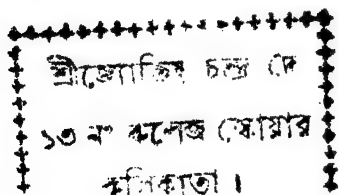 শ্রীজ্যোতিষ চন্দ্র দে
১৩ নং কলেজ স্কোয়ার
কলিকাতা ।